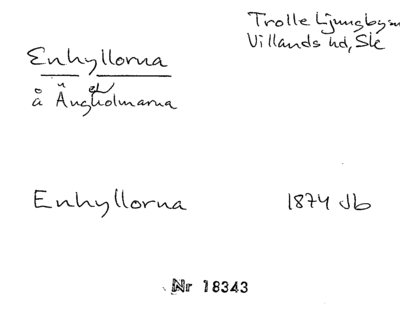 Trolle Ljungby sn
Villands hd, Sk
Enhyllorna
å Ängholmarna
Enhyllorna 1874 Jb
Nr 18343